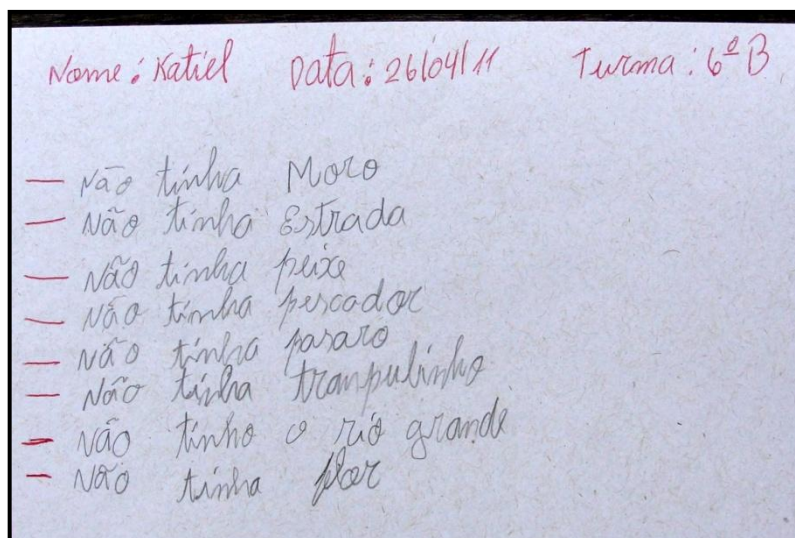 Nome: Katiel Data: 26/04/11 Turma: 6º B
— Não tinha Moro
— Não tinha Estrada
— Não tinha peixe
— Não tinha pescador
— Não tinha pasaro
— Não tinha tranpulinho
— Não tinho o rio grande
— Não tinha flor